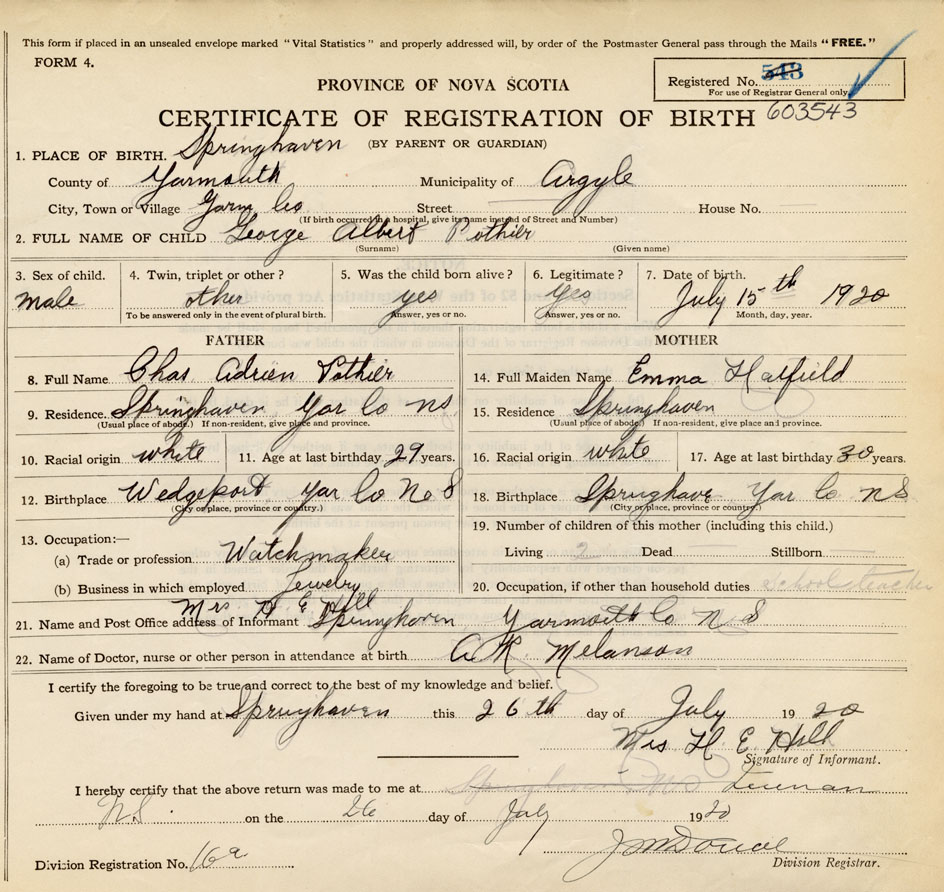 This form if placed in an unsealed envelope marked "Vital Statistics" and properly addressed will, by order of the Postmaster General pass through the Mails "FREE."
FORM 4.
Registered No. 543
For use of Registrar General only
603543
PROVINCE OF NOVA SCOTIA
CERTIFICATE OF REGISTRATION OF BIRTH
(BY PARENT OR GUARDIAN)
1. PLACE OF BIRTH. Springhaven
County of Yarmouth Municipality of Argyle
City, Town or Village Yarm Co Street House No.
(If birth occurred in a hospital, give its name instead of Street and Number)
2. FULL NAME OF CHILD George Albert Pothier
(Surname) (Given name)
3. Sex of child. 4. Twin, triplet or other? 5. Was the child born alive? 6. Legitimate? 7. Date of birth.
male other yes yes July 15th 1920
To be answered only in the event of plural birth. Answer, yes or no. Answer, yes or no. Month, day, year.
FATHER MOTHER
8. Full Name Chas Adrien Pothier 14. Full Maiden Name Emma Hatfield
9. Residence. Springhaven Yar Co NS 15. Residence Springhaven
(Usual place of abode.) If non-resident, give place and province. (Usual place of abode) If non-resident, give place and province.
10. Racial origin white 11. Age at last birthday 29 years. 16. Racial origin white 17. Age at last birthday 30 years.
12. Birthplace Wedgeport Yar Co No S 18. Birthplace Sprughave Yar Co NS
(City or place, province or country.) (City or place, province or country.)
19. Number of children of this mother (including this child.)
13. Occupation:—
(a) Trade or profession Watchmaker Living 2 Dead Stillborn
(b) Business in which employed Jewelry 20. Occupation, if other than household duties School teacher
Mrs H E Hill
21. Name and Post Office address of Informant Springhaven Yarmouth Co N S
22. Name of Doctor, nurse or other person in attendance at birth A R Melanson
I certify the foregoing to be true and correct to the best of my knowledge and belief.
Given under my hand at Spruyhaven this 26th day of July 1920
Mrs H. E. Hill
Signature of Informant.
I hereby certify that the above return was made to me at Springhaven NS
N.S. on the 26 day of July 1920
Division Registration No. 16a
Division Registrar.